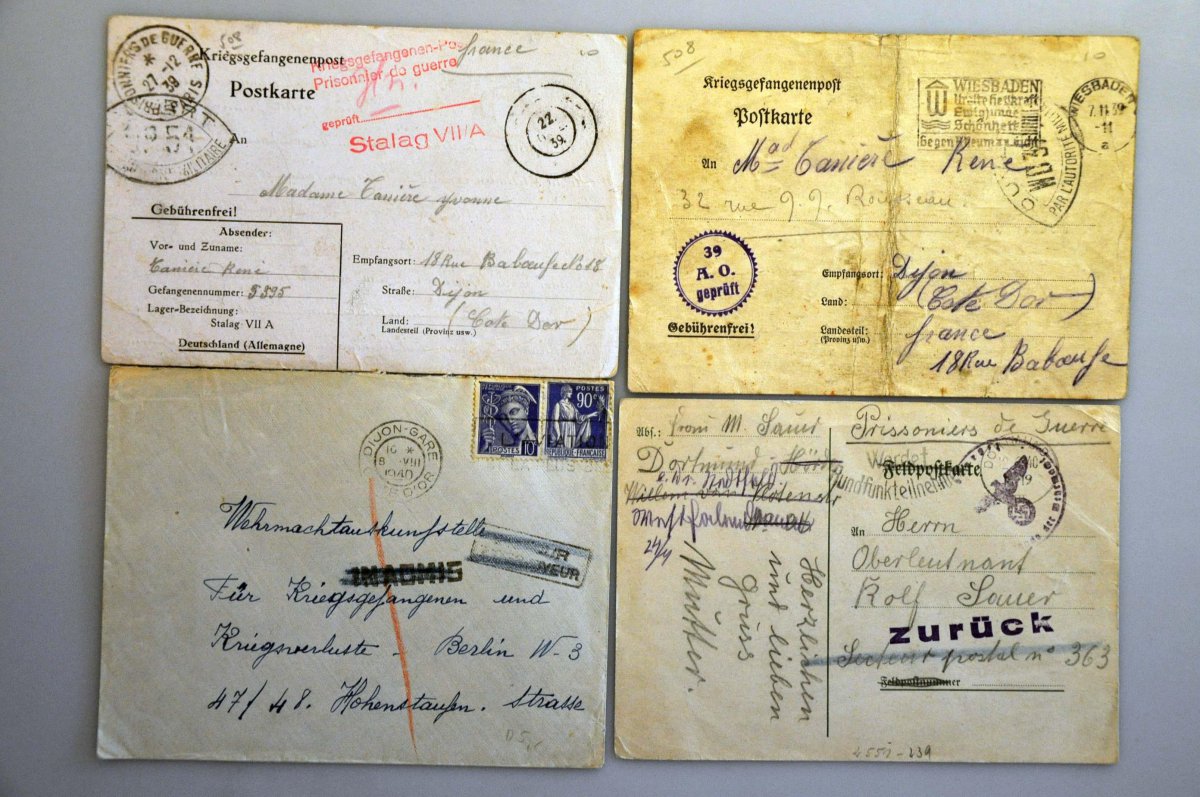 PRISONNIERS DE GUERRE
27-12
39
PARIS
508
Kriegsgefangenenpost
Postkarte
An
Kriegsgefangenen-Post
Prisonnier de guerre
geprüft
Stalag VII/A
france
10
22
39
Madame Tanière Yvonne
Gebührenfrei!
Absender:
Vor- und Zuname:
Tanière René
Gefangenennummer: 5395
Lager-Bezeichnung:
Stalag VII A
Deutschland (Allemagne)
Empfangsort: 18 Rue Babaeuf
Straße: Dijon
Land: (Cote Dor)
Landesteil (Provinz usw.)
508
10
Kriegsgefangenenpost
Postkarte
WIESBADEN
Schönheit
WIESBADEN
7.11.39
-11
a
PAR L'AUTORITE
An Mad Tanière René
32 rue J. J. Rousseau
39
A. O.
geprüft
Gebührenfrei!
Empfangsort: Dijon
Land: (Cote Dor)
Landesteil: france
(Provinz usw.)
18 Rue Babaeufe
DIJON-GARE
16 *
8 VIII
1940
COTE D'OR
POSTES
10
POSTES
90c
REPUBLIQUE FRANÇAISE
Wehrmachtauskunftstelle
INADMIS
Für Kriegsgefangenen und
Kriegsverluste - Berlin W-3
47/48. Hohenstaufen. Strasse
Abs: Frau M. Sauer
Dortmund-Hörde
24/4
Herzlichen
und lieben
Gruss
Mutter.
Prissoniers de Guerre
Werdet
Rundfunkteilnehmer
Feldpostkarte
An Herrn
Oberleutnant
Rolf Sauer
zurück
Secteur postal n° 363
Feldpostnummer
4551-239